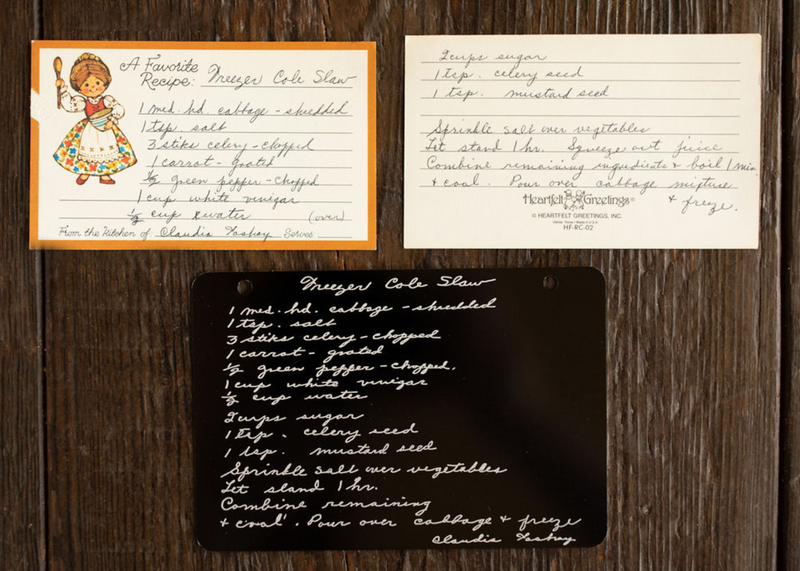 A Favorite
Recipe: Freezer Cole Slaw
1 med. hd. cabbage - shredded
1 tsp. salt
3 stiks celery - chopped
1 carrot - grated
1/2 green pepper - chopped
1 cup white vinigar
1/2 cup water (over)
From the Kitchen of Claudia Foshay Serves
2 cups sugar
1 tsp. celery seed
1 tsp. mustard seed
Sprinkle salt over vegetables
Let stand 1 hr. Squeeze out juice
Combine remaining ingredients & boil 1 min
& cool. Pour over cabbage mixture
& freeze.
Heartfelt Greetings®
© HEARTFELT GREETINGS, INC.
HF-RC-02
Freezer Cole Slaw
1 med. hd. cabbage - shredded
1 tsp. salt
3 stiks celery - chopped
1 carrot - grated
1/2 green pepper - chopped.
1 cup white vinigar
1/2 cup water
2 cups sugar
1 tsp. celery seed
1 tsp. mustard seed
Sprinkle salt over vegetables
Let stand 1 hr.
Combine remaining
& cool. Pour over cabbage & freeze
Claudia Foshay